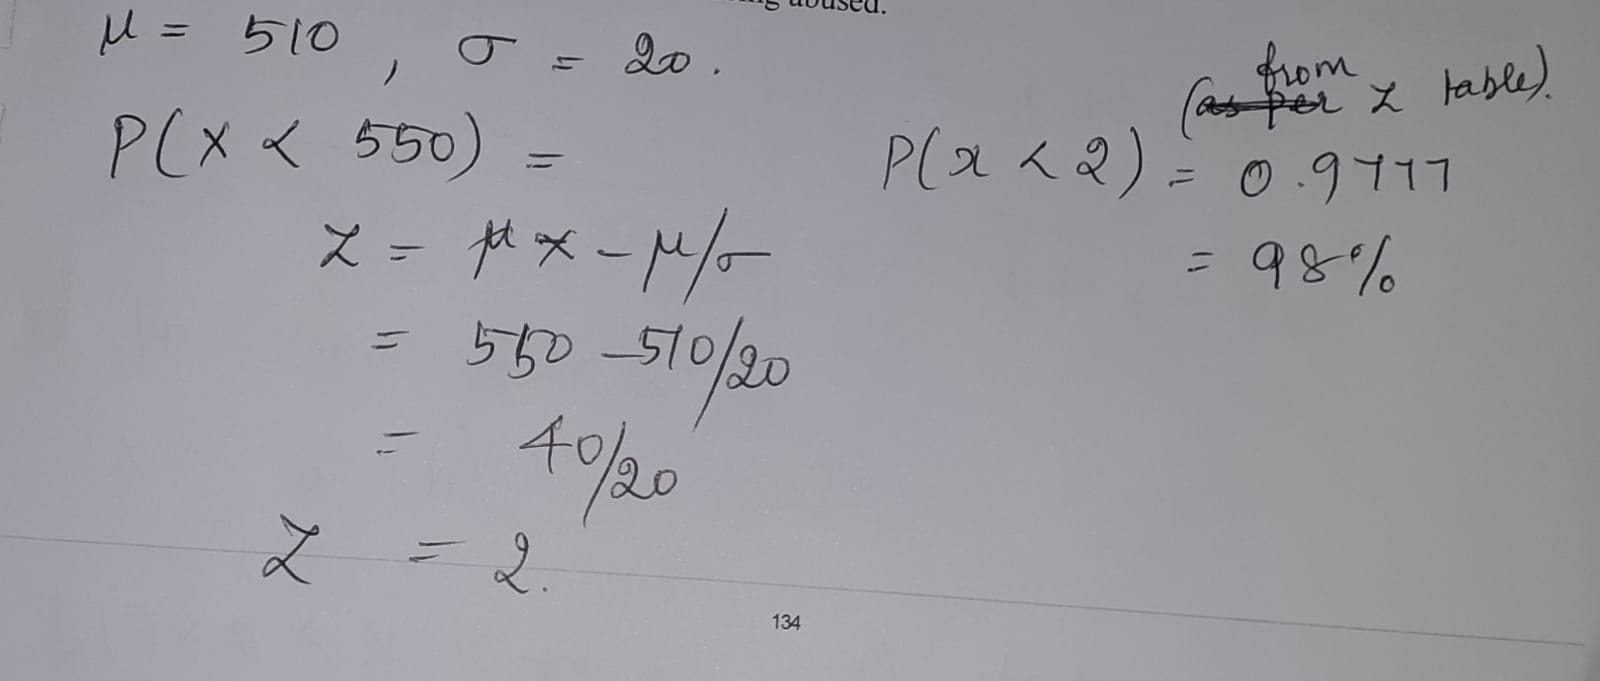 ng abused.
μ = 510 , σ = 20.
P(X < 550) =
Z = x - μ/σ
= 550 - 510/20
= 40/20
Z = 2.
(from Z table).
P(x < 2) = 0.9777
= 98%
134